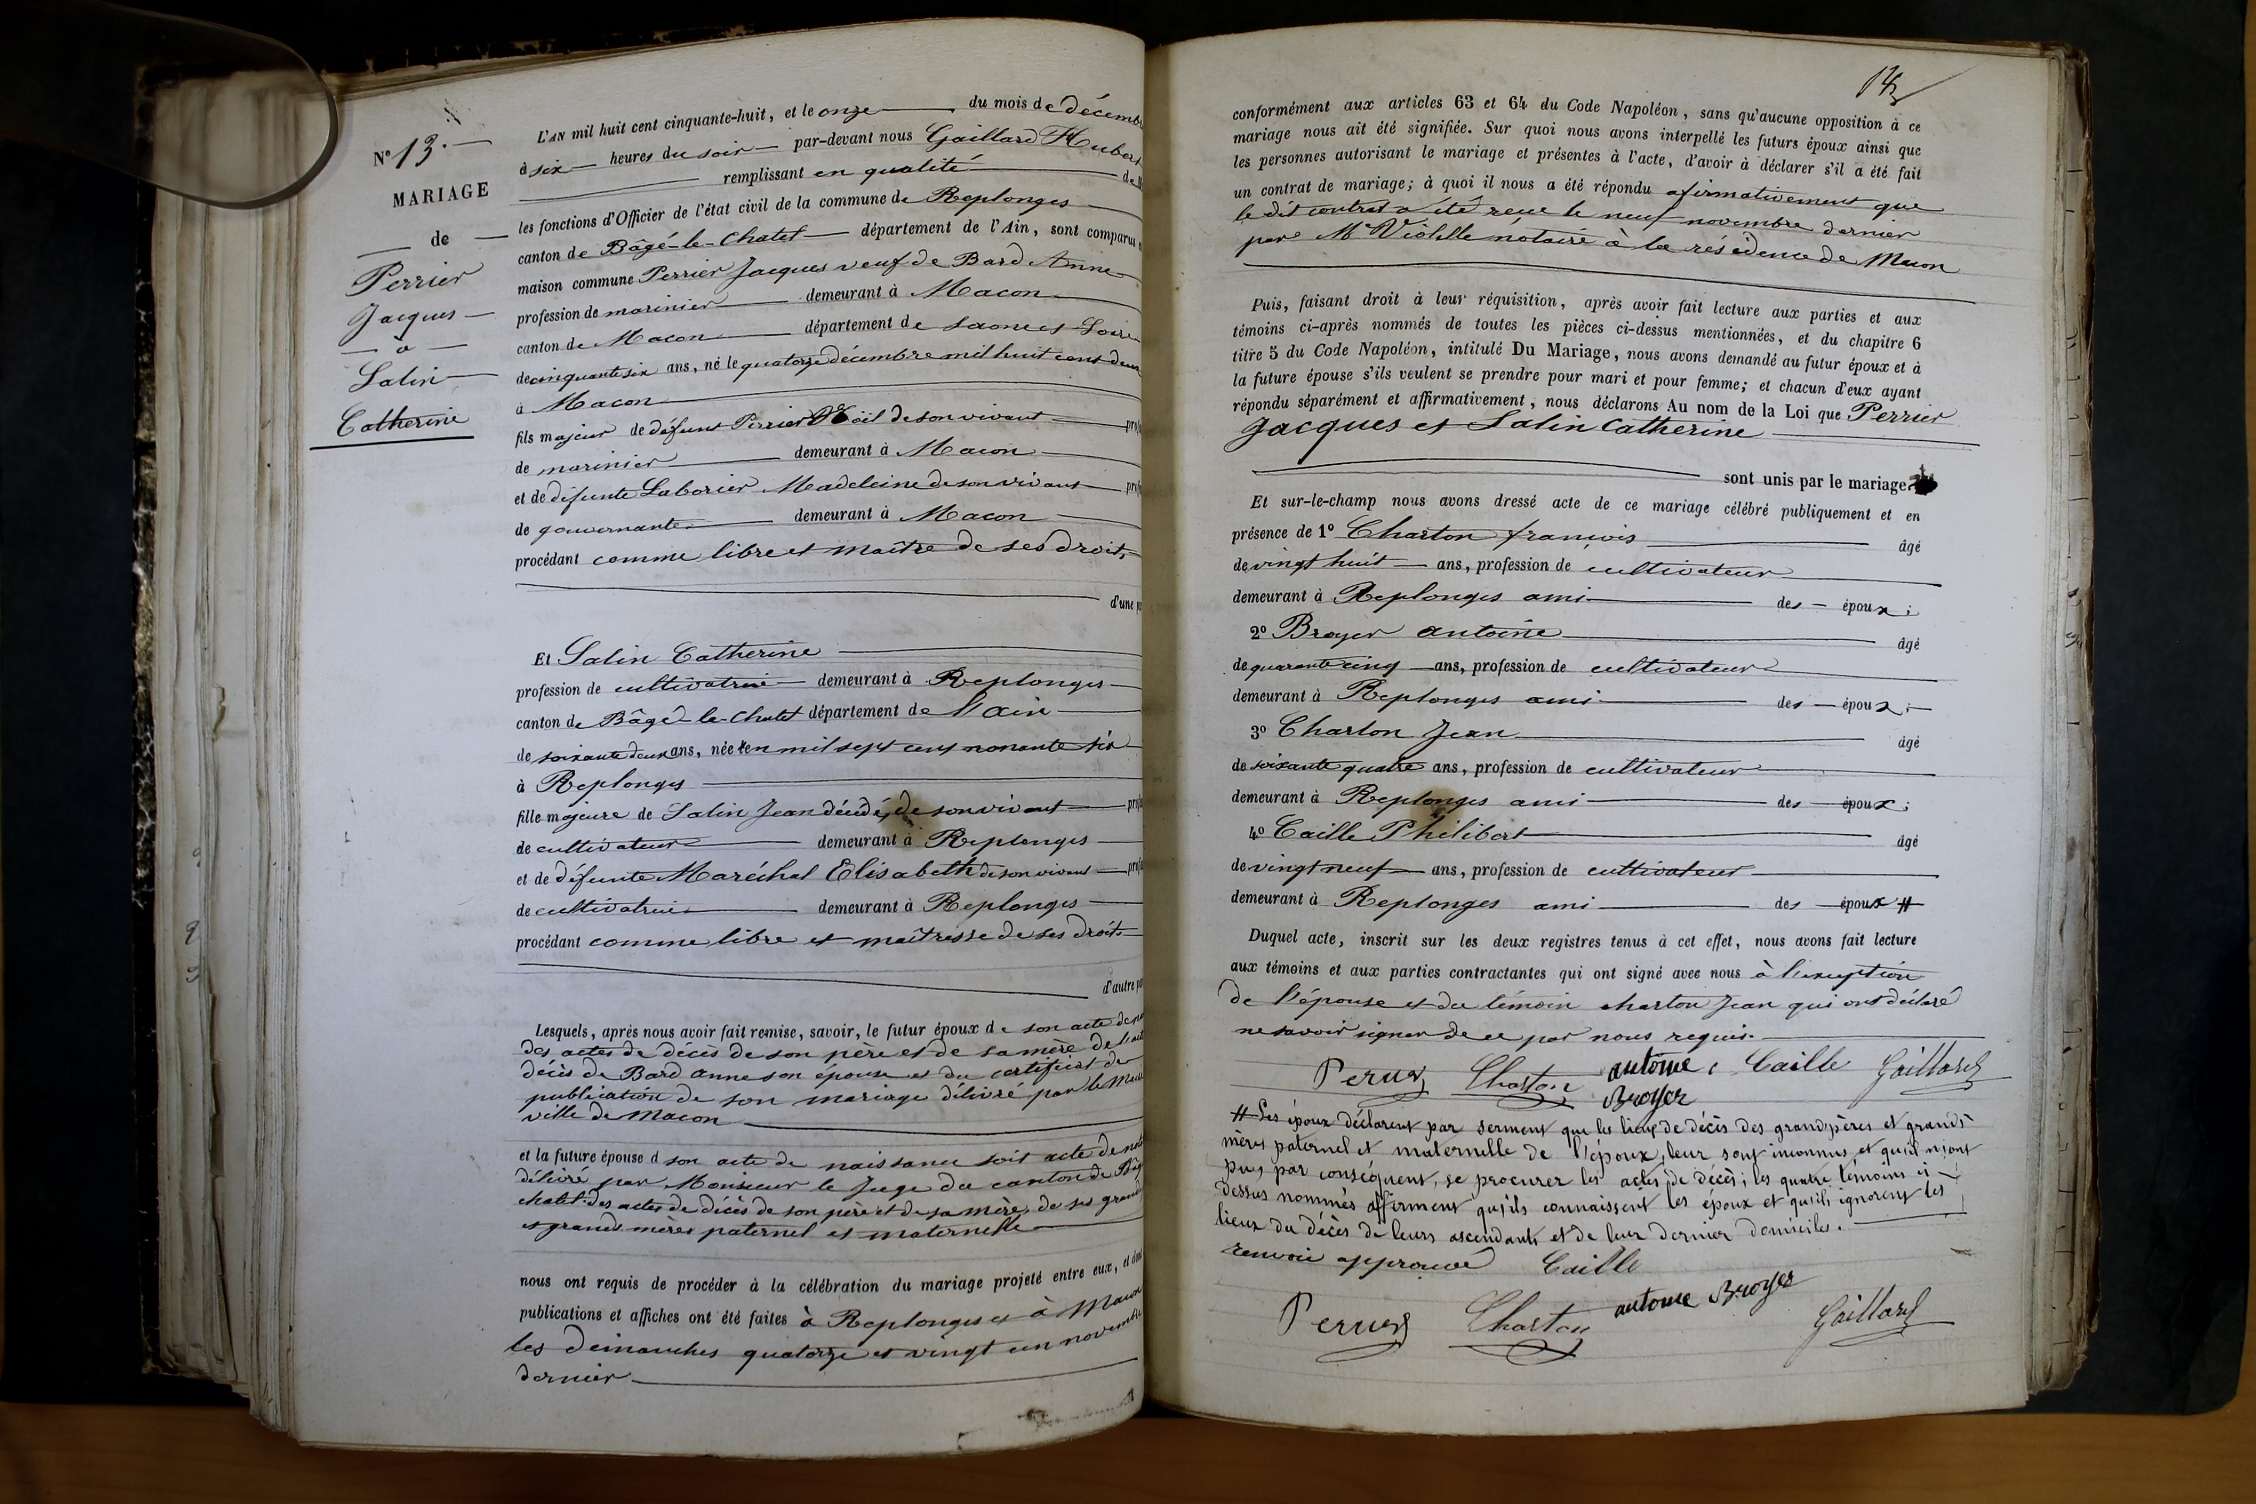 N° 13.
MARIAGE
de
Perrier
Jacques
à
Salin
Catherine
L'AN mil huit cent cinquante-huit, et le onze du mois de décemb
à six heures du soir par-devant nous Gaillard Hubert
remplissant en qualité de
les fonctions d'Officier de l'état civil de la commune de Replonges
canton de Bâgé-le-Chatel département de l'Ain, sont comparus
maison commune Perrier Jacques veuf de Bard Anne
profession de marinier demeurant à Macon
canton de Macon département de Saone et Loire
de cinquante six ans, né le quatorze décembre mil huit cent deux
à Macon
fils majeur de défunt Perrier Noël de son vivant
de marinier demeurant à Macon
et de défunte Laborier Madeleine de son vivant
de gouvernante demeurant à Macon
procédant comme libre et maître de ses droits
d'une
Et Salin Catherine
profession de cultivatrice demeurant à Replonges
canton de Bâgé-le-Chatel département de l'Ain
de soixante deux ans, née en mil sept cent nonante six
à Replonges
fille majeure de Salin Jean décédé, de son vivant
de cultivateur demeurant à Replonges
et de défunte Maréchal Elisabeth de son vivant
de cultivatrice demeurant à Replonges
procédant comme libre et maîtresse de ses droits
d'autre
Lesquels, après nous avoir fait remise, savoir, le futur époux de son acte de
des actes de décès de son père et de sa mère de l'acte
décès de Bard Anne son épouse et du certificat de
publication de son mariage délivré par le
ville de Macon
et la future épouse d son acte de naissance soit acte de
délivré par Monsieur le Juge du canton de Bâgé
chatel des actes de décès de son père et de sa mère, de ses grand
et grands mères paternel et maternelle
nous ont requis de procéder à la célébration du mariage projeté entre eux, et
publications et affiches ont été faites à Replonges et à Macon
les dimanches quatorze et vingt un novembre
dernier
14
conformément aux articles 63 et 64 du Code Napoléon, sans qu'aucune opposition à ce
mariage nous ait été signifiée. Sur quoi nous avons interpellé les futurs époux ainsi que
les personnes autorisant le mariage et présentes à l'acte, d'avoir à déclarer s'il a été fait
un contrat de mariage; à quoi il nous a été répondu afirmativement que
le dit contrat a été reçu le neuf novembre dernier
par Me Violelle notaire à la résidence de Macon
Puis, faisant droit à leur réquisition, après avoir fait lecture aux parties et aux
témoins ci-après nommés de toutes les pièces ci-dessus mentionnées, et du chapitre 6
titre 5 du Code Napoléon, intitulé Du Mariage, nous avons demandé au futur époux et à
la future épouse s'ils veulent se prendre pour mari et pour femme; et chacun d'eux ayant
répondu séparément et affirmativement, nous déclarons Au nom de la Loi que Perrier
Jacques et Salin Catherine
sont unis par le mariage.
Et sur-le-champ nous avons dressé acte de ce mariage célébré publiquement et en
présence de 1° Charton françois âgé
de vingt huit ans, profession de cultivateur
demeurant à Replonges ami des époux;
2° Broyer antoine âgé
de quarante cinq ans, profession de cultivateur
demeurant à Replonges ami des époux;
3° Charton Jean âgé
de soixante quatre ans, profession de cultivateur
demeurant à Replonges ami des époux;
4° Caille Philibert âgé
de vingt neuf ans, profession de cultivateur
demeurant à Replonges ami des époux #
Duquel acte, inscrit sur les deux registres tenus à cet effet, nous avons fait lecture
aux témoins et aux parties contractantes qui ont signé avec nous à l'exception
de l'épouse et du témoin charton Jean qui ont déclaré
ne savoir signer de ce par nous requis.
Perrier Charton antoine Broyer Caille Gaillard
# Les époux déclarent par serment que les lieux de décès des grands pères et grands
mères paternel et maternelle de l'époux, leur sont inconnus et qu'ils n'ont
pu, par conséquent, se procurer les actes de décès; les quatre témoins ci
dessus nommés affirment qu'ils connaissent les époux et qu'ils ignorent les
lieux du décès de leurs ascendants et de leur dernier domicile.
renvoi approuvé Caille
Perrier Charton antoine Broyer Gaillard